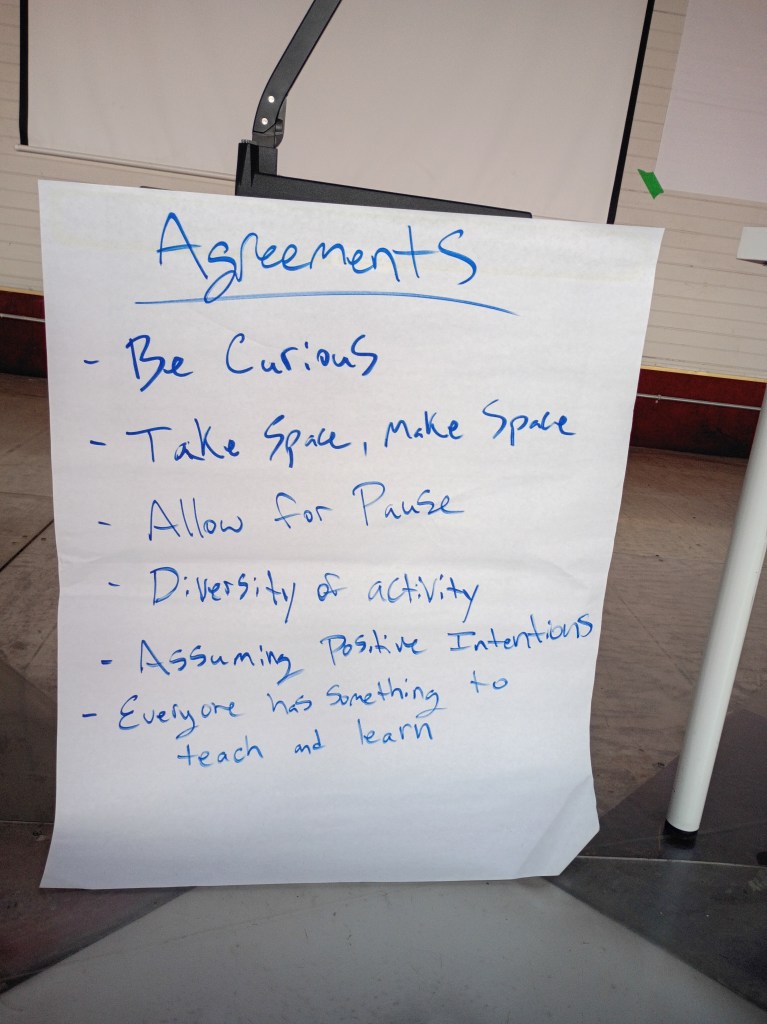 Agreements
- Be Curious
- Take Space, Make Space
- Allow for Pause
- Diversity of activity
- Assuming Positive Intentions
- Everyone has something to
teach and learn